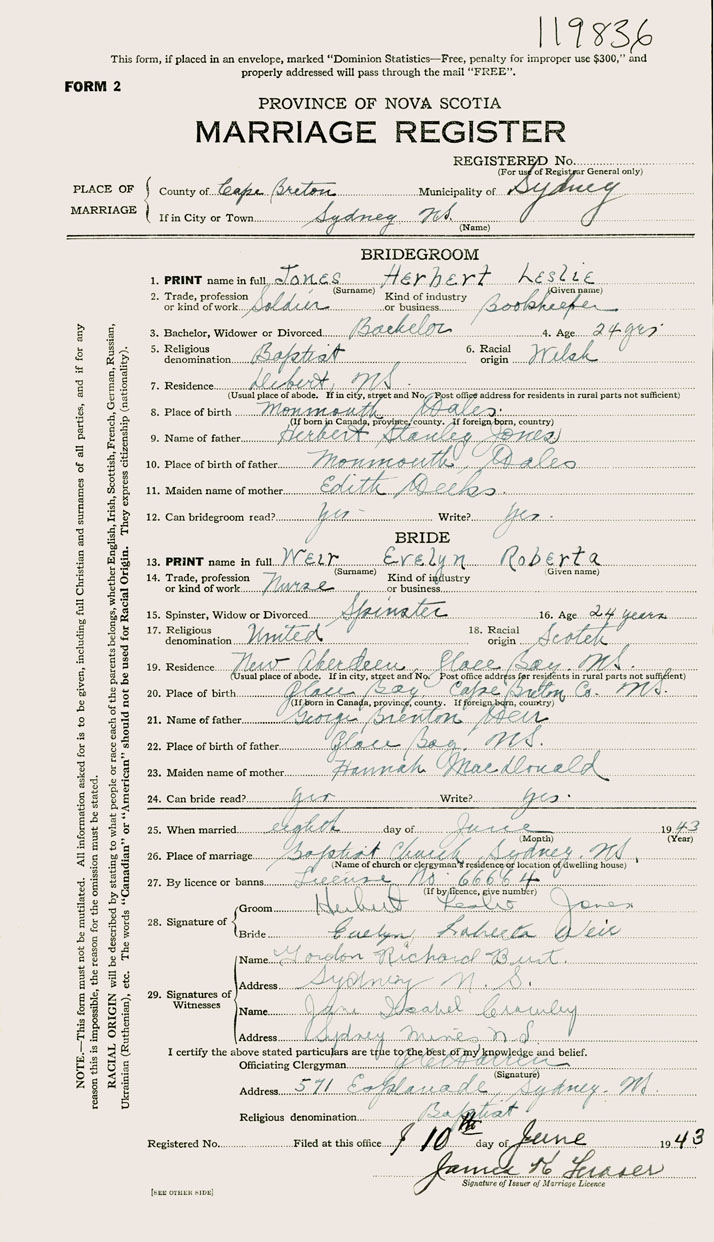 119836
This form, if placed in an envelope, marked "Dominion Statistics—Free, penalty for improper use $300," and
properly addressed will pass through the mail "FREE".
FORM 2
PROVINCE OF NOVA SCOTIA
MARRIAGE REGISTER
REGISTERED No.
(For use of Registrar General only)
PLACE OF MARRIAGE
County of Cape Breton Municipality of Sydney
If in City or Town Sydney NS.
(Name)
BRIDEGROOM
1. PRINT name in full Jones Herbert Leslie
(Surname) (Given name)
2. Trade, profession or kind of work Soldier Kind of industry or business Bookkeeper
3. Bachelor, Widower or Divorced Bachelor 4. Age 24 yrs
5. Religious denomination Baptist 6. Racial origin Welsh
7. Residence Debert, NS.
(Usual place of abode. If in city, street and No. Post office address for residents in rural parts not sufficient)
8. Place of birth Monmouth Wales.
(If born in Canada, province, county. If foreign born, country)
9. Name of father Herbert Stanley Jones
10. Place of birth of father Monmouth, Wales
11. Maiden name of mother Edith Deeks.
12. Can bridegroom read? yes Write? yes.
BRIDE
13. PRINT name in full Weir Evelyn Roberta
(Surname) (Given name)
14. Trade, profession or kind of work Nurse Kind of industry or business
15. Spinster, Widow or Divorced Spinster 16. Age 24 years
17. Religious denomination United 18. Racial origin Scotch
19. Residence New Aberdeen, Glace Bay. NS.
(Usual place of abode. If in city, street and No. Post office address for residents in rural parts not sufficient)
20. Place of birth Glace Bay, Cape Breton Co. NS.
(If born in Canada, province, county. If foreign born, country)
21. Name of father George Brenton Weir
22. Place of birth of father Glace Bay. NS.
23. Maiden name of mother Hannah Macdonald
24. Can bride read? yes Write? yes.
25. When married eighth day of June 1943
(Month) (Year)
26. Place of marriage Baptist Church, Sydney. NS.
(Name of church or clergyman's residence or location of dwelling house)
27. By licence or banns License No. 66664
(If by licence, give number)
28. Signature of
Groom Herbert Leslie Jones
Bride Evelyn Roberta Weir
29. Signatures of Witnesses
Name Gordon Richard Burt.
Address Sydney N. S.
Name Jane Isabel Crowley
Address Sydney Mines N.S.
I certify the above stated particulars are true to the best of my knowledge and belief.
Officiating Clergyman
(Signature)
Address 571 Esplanade, Sydney. NS.
Religious denomination Baptist
Registered No. Filed at this office 10th day of June 1943
James K Fraser
Signature of Issuer of Marriage Licence
[SEE OTHER SIDE]
NOTE.—This form must not be mutilated. All information asked for is to be given, including full Christian and surnames of all parties, and if for any
reason this is impossible, the reason for the omission must be stated.
RACIAL ORIGIN will be described by stating to what people or race each of the parents belongs, whether English, Irish, Scottish, French, German, Russian,
Ukrainian (Ruthenian), etc. The words "Canadian" or "American" should not be used for Racial Origin. They express citizenship (nationality).